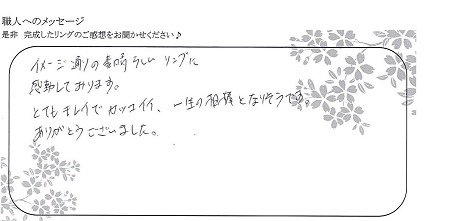 職人へのメッセージ
是非 完成したリングのご感想をお聞かせください♪
イメージ通りの素晴らしい リングに
感動しております。
とてもキレイで カッコイイ、一生の宝物となりそうです。
ありがとうございました。